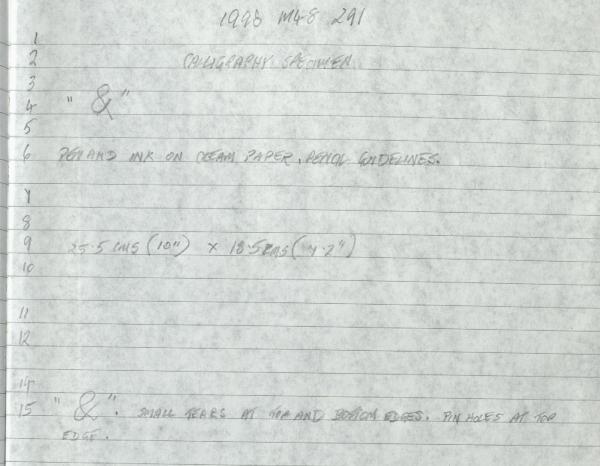 1998 M48 291
1
2 CALLIGRAPHY SPECIMEN
3
4 " & "
5
6 PEN AND INK ON CREAM PAPER, PENCIL GUIDELINES.
7
8
9 25.5 CMS (10") × 18.5 CMS (7.2")
10
11
12
14
15 " & ". SMALL TEARS AT TOP AND BOTTOM EDGES. PIN HOLES AT TOP
EDGE.